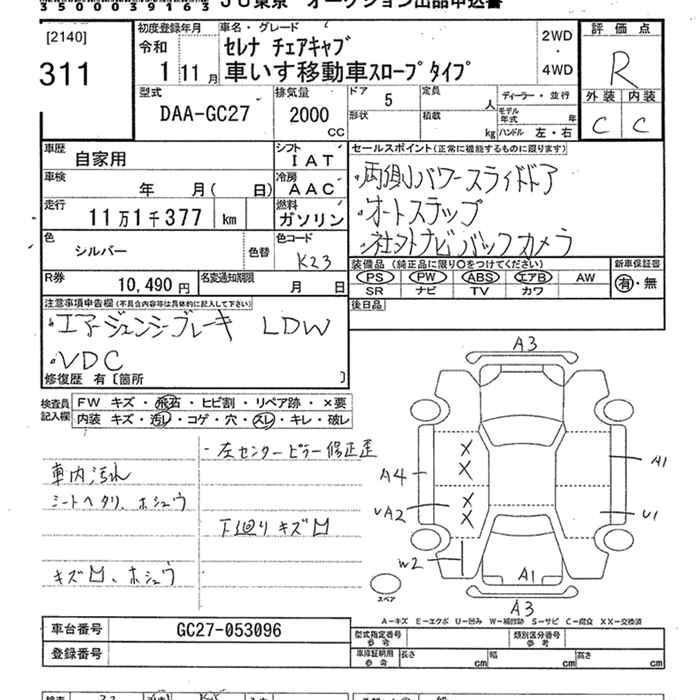 JU東京 オークション出品申込書
[2140]
311
初度登録年月
令和
1 11月
車名・グレード
セレナ チェアキャブ
車いす移動車スロープタイプ
2WD
・
4WD
評価点
R
外装 内装
C C
型式
DAA-GC27
排気量
2000
CC
ドア
5
定員
人
形状
積載
kg
ディーラー・並行
モデル年式
年
ハンドル 左・右
車歴
自家用
シフト
IAT
車検
年 月( 日)
冷房
AAC
走行
11万1千377 km
燃料
ガソリン
色
シルバー
色替
色コード
K23
R券
10,490円
名変通知期限
月 日
セールスポイント(正常に機能するものに限ります)
・両側パワースライドドア
・オートステップ
・社外ナビバックカメラ
装備品(純正品に限り○をつけてください)
PS PW ABS エアB AW
SR ナビ TV カワ
新車保証書
有・無
後日品
注意事項申告欄(不具合内容等は具体的に記入して下さい)
・エマージェンシーブレーキ LDW
・VDC
修復歴 有〔箇所 〕
検査員記入欄
FW キズ・飛石・ヒビ割・リペア跡・×要
内装 キズ・汚レ・コゲ・穴・スレ・キレ・破レ
・左センターピラー修正歪
車内汚れ
シートヘタリ、ホシュウ
下廻りキズ凹
キズ凹、ホシュウ
A3
A4
A1
UA2
U1
W2
A1
A3
X
X
X
X
スペア
A−キズ E−エクボ U−凹み W−補修跡 S−サビ C−腐食 XX−交換済
車台番号
GC27-053096
登録番号
型式指定番号
参考
類別区分番号
参考
車庫証明用
参考
長さ cm
幅 cm
高さ cm